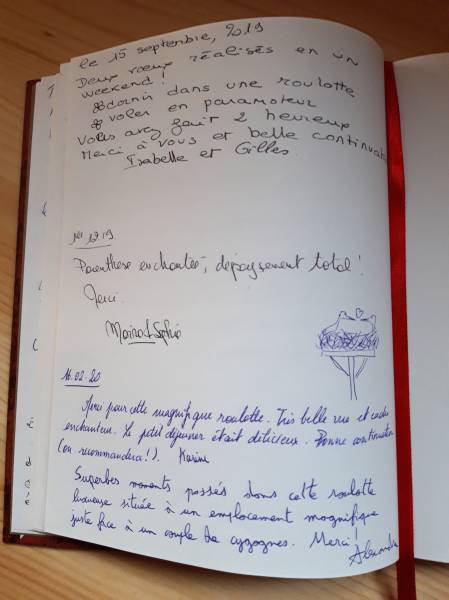 le 15 septembre, 2019
Deux vœux réalisés en un
weekend!
dormir dans une roulotte
voler en paramoteur
Vous avez fait 2 heureux
Merci à vous et belle continuat
Isabelle et Gilles.
1er 12 19.
Parenthèse enchantée, dépaysement total!
Merci.
16.02-20
Merci pour cette magnifique roulotte. Très belle vue et cadre
enchanteur. Le petit déjeuner était délicieux. Bonne continuation
(on recommandera!). Karine
Superbes moments passés dans cette roulotte
luxueuse située à un emplacement magnifique
juste face à un couple de cygognes. Merci!
Alexandre